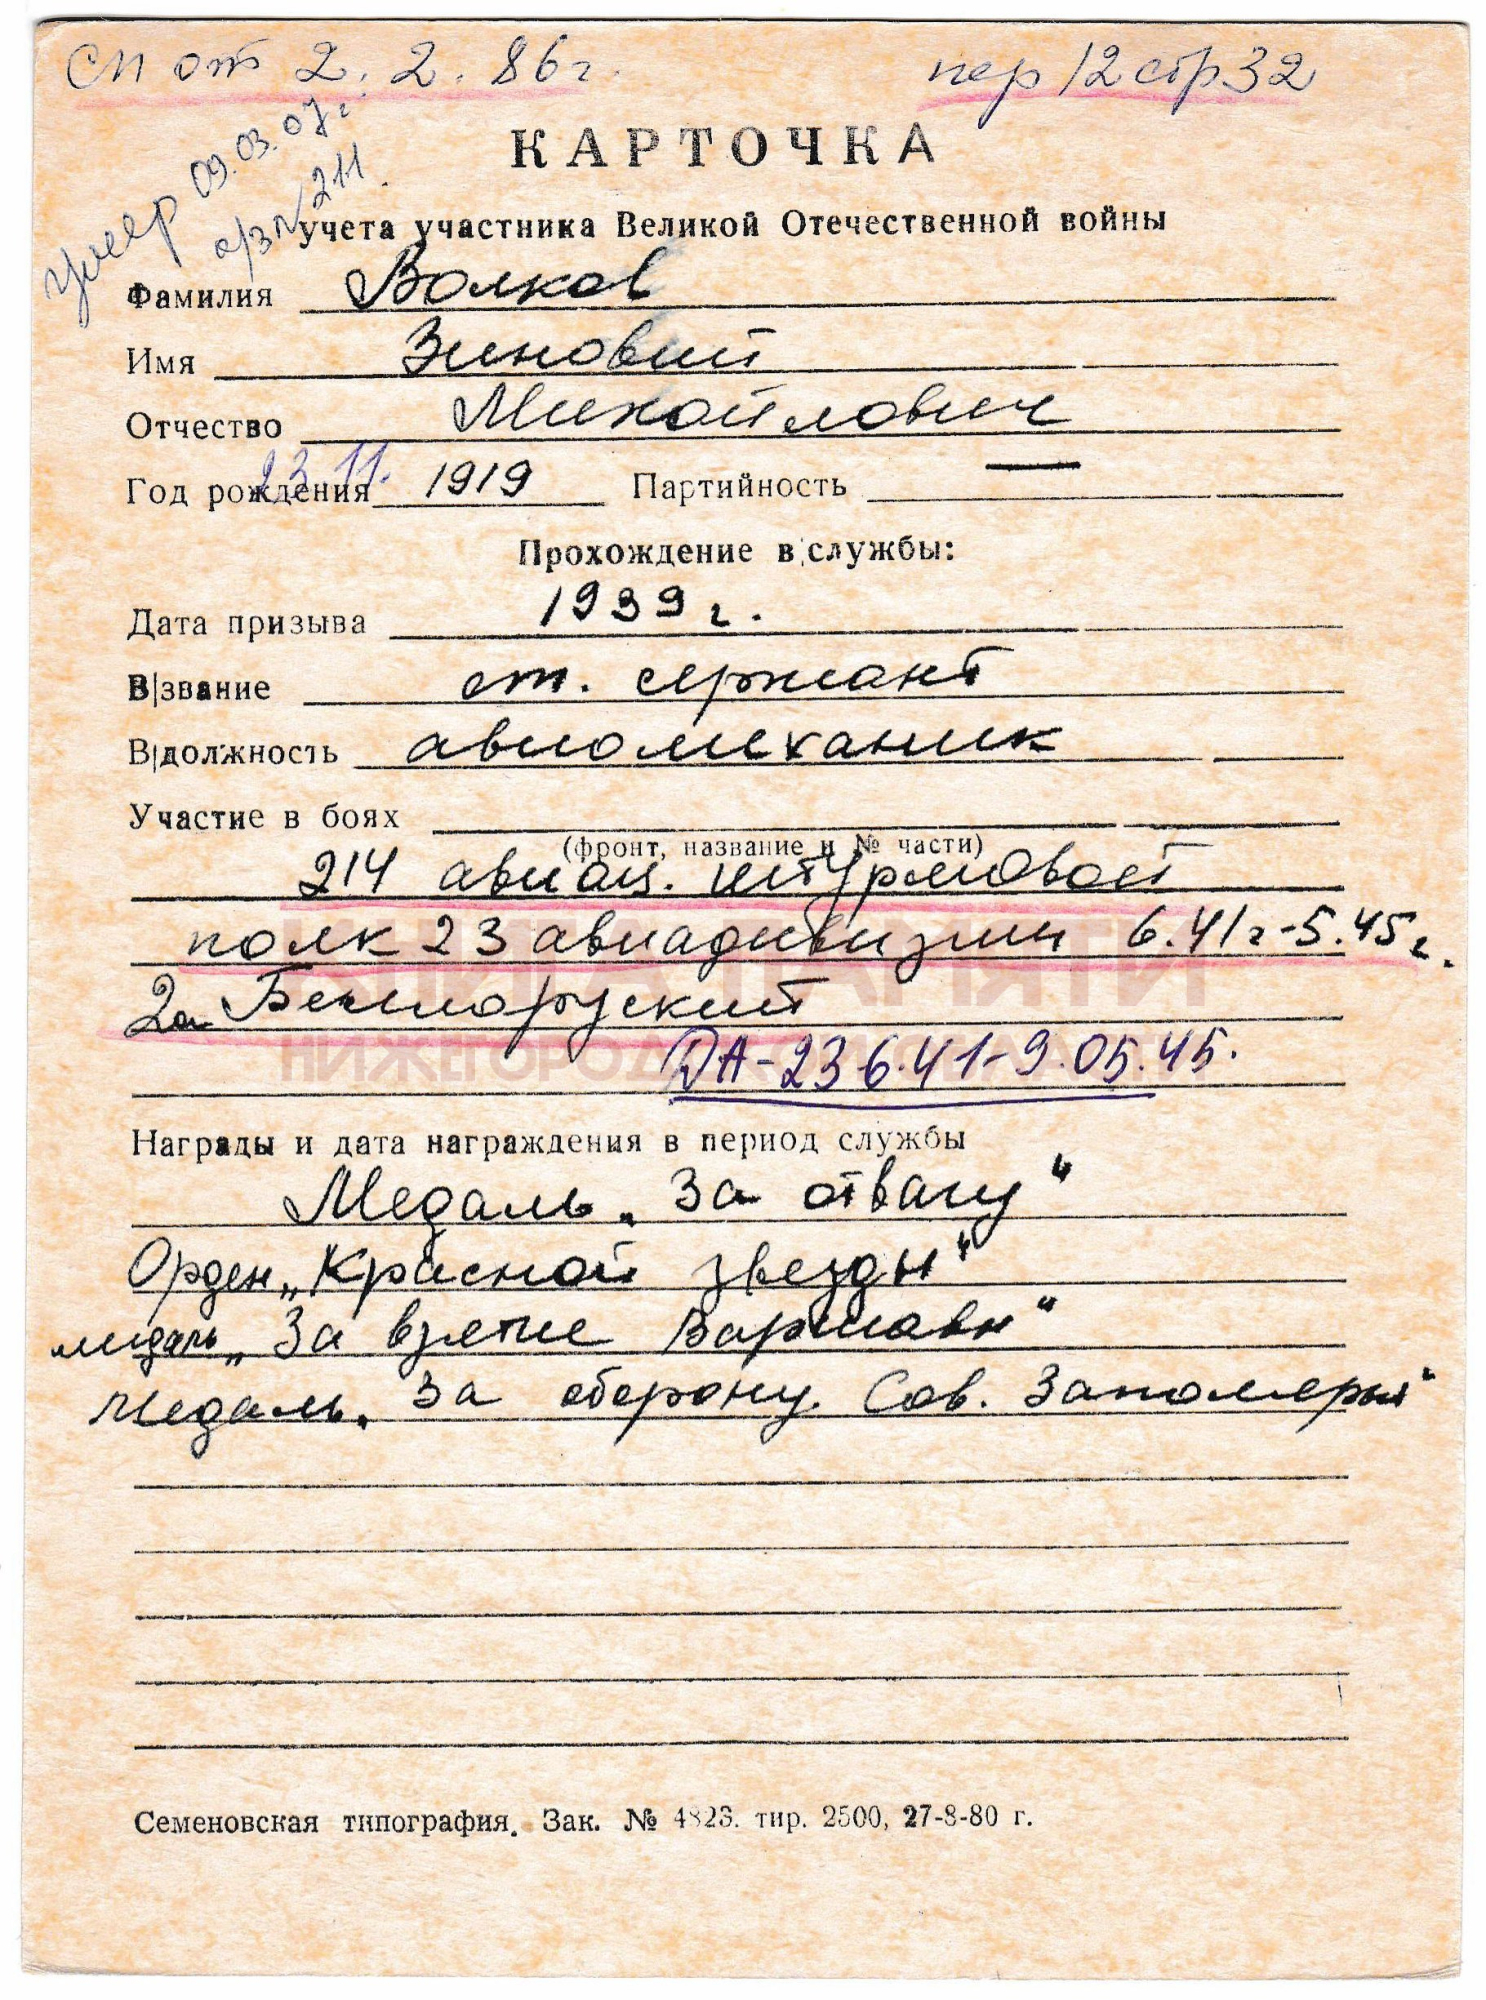 СП от 2.2.86г.
пер 12 стр 32
умер 09.03.07г.
а/з №211
КАРТОЧКА
учета участника Великой Отечественной войны
Фамилия Волков
Имя Зиновий
Отчество Михайлович
Год рождения 23.11. 1919 Партийность —
Прохождение в/службы:
Дата призыва 1939 г.
В/звание ст. сержант
В/должность авиомеханик
Участие в боях
(фронт, название и № части)
214 авиац. штурмовой
полк 23 авиадивизии 6.41г-5.45г.
2й Белоруский
КНИГА ПАМЯТИ
ДА-23 6.41-9.05.45.
Награды и дата награждения в период службы
Медаль „За отвагу"
Орден „Красной звезды"
медаль „За взятие Варшавы"
Медаль „За оборону Сов. Заполярья"
Семеновская типография. Зак. № 4823. тир. 2500, 27-8-80 г.